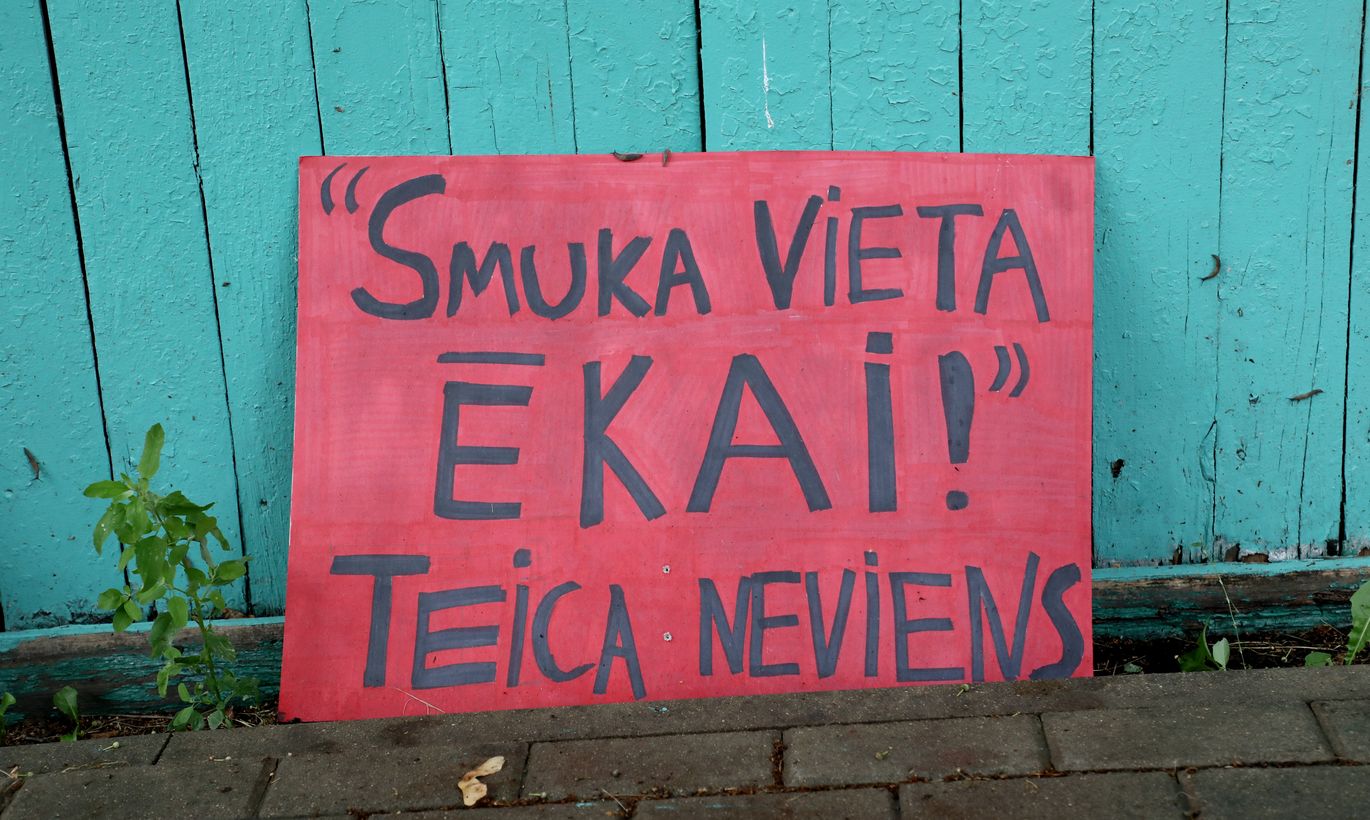 “SMUKA VIETA
ĒKAI!”
TEICA NEVIENS